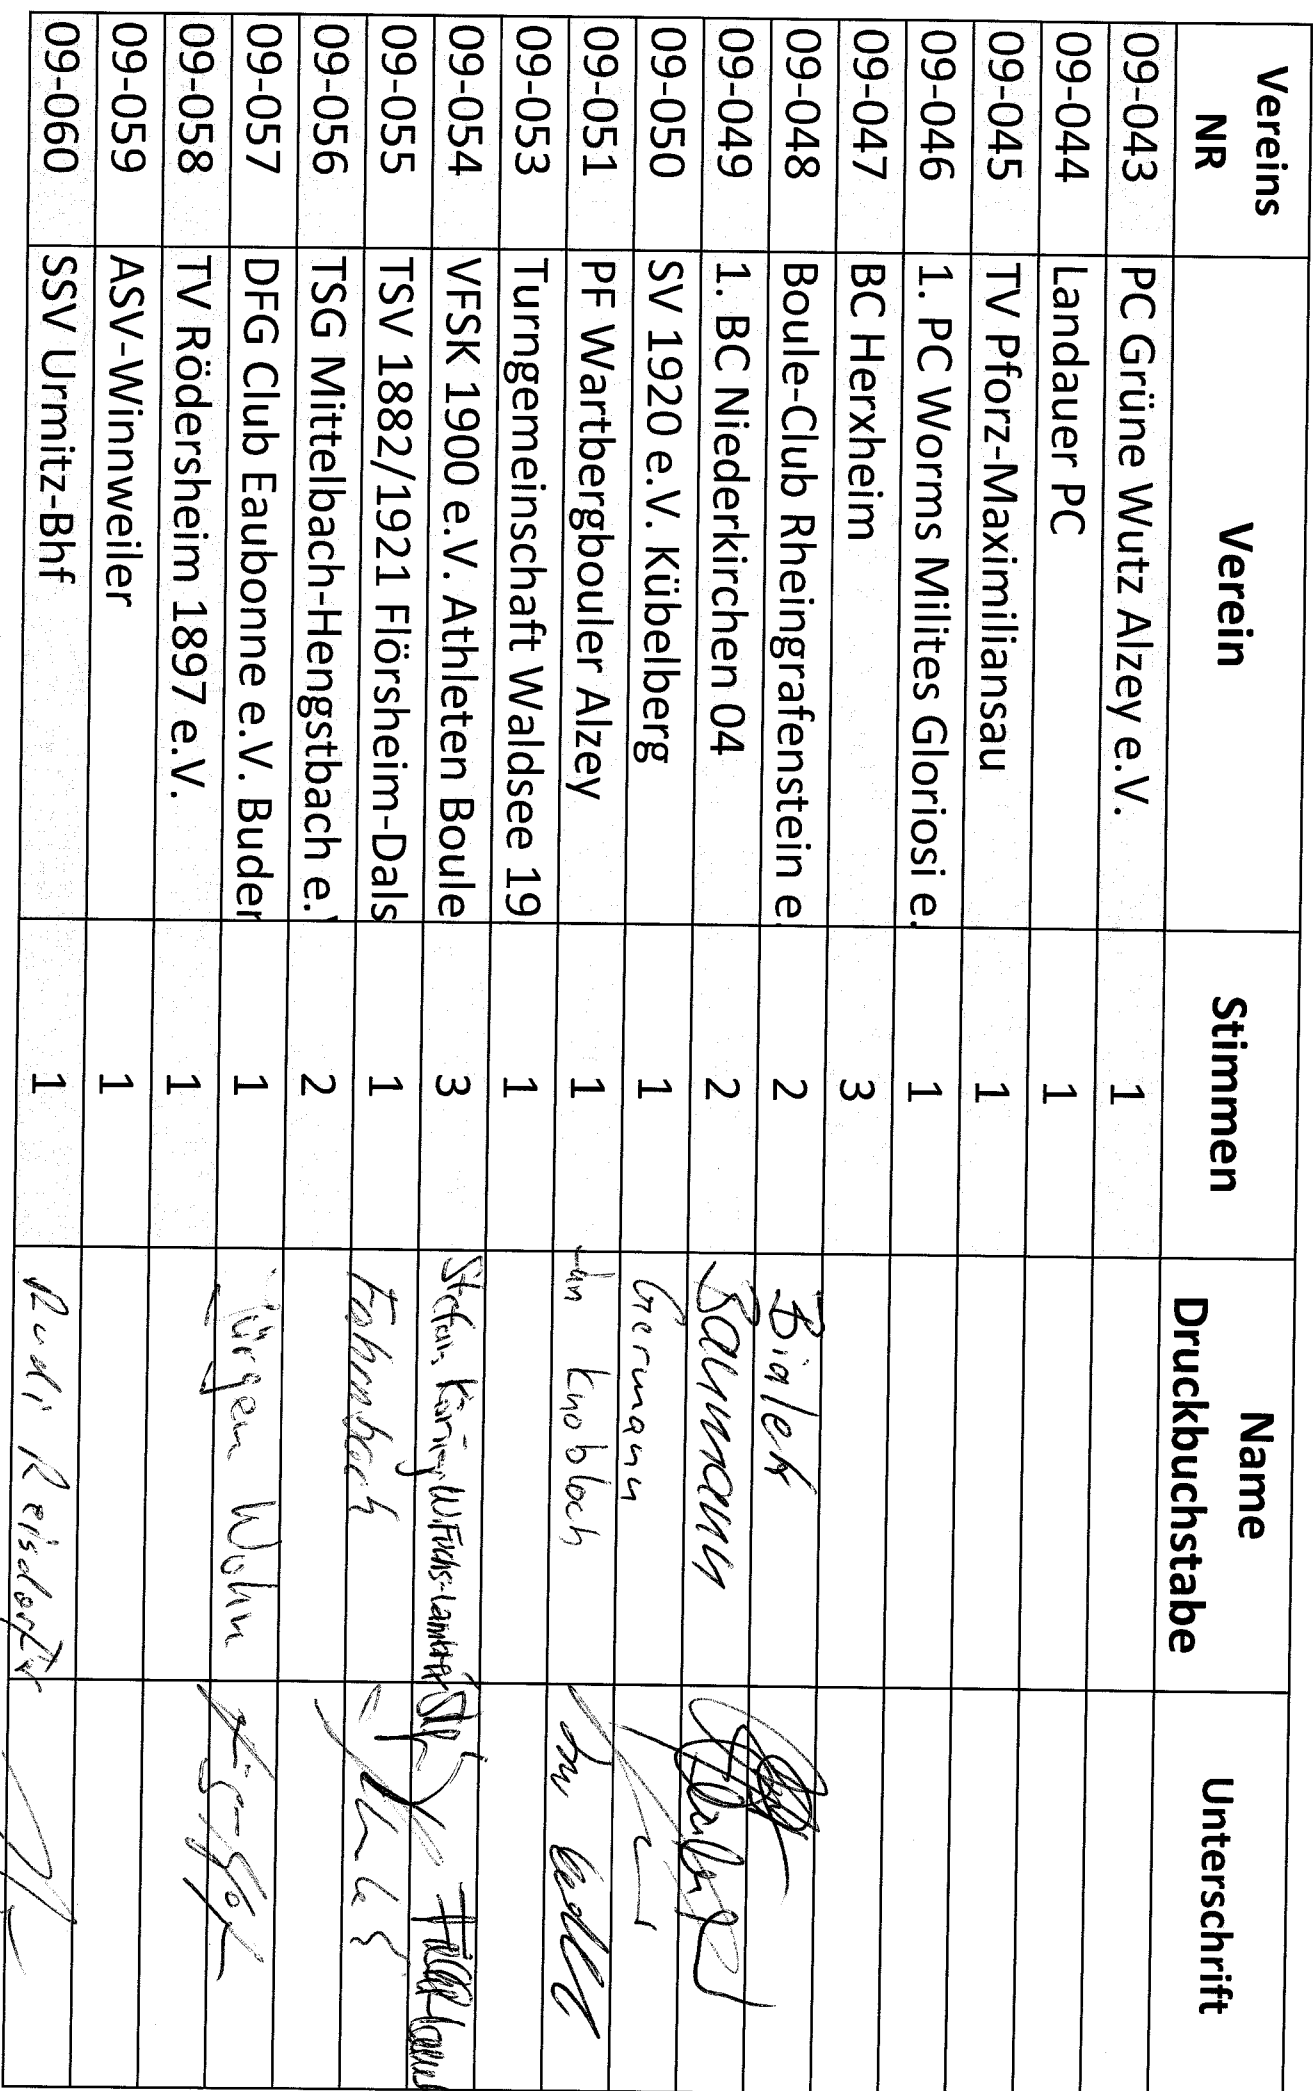 Vereins NR Verein Stimmen Name Druckbuchstabe Unterschrift
09-043 PC Grüne Wutz Alzey e.V. 1
09-044 Landauer PC 1
09-045 TV Pforz-Maximiliansau 1
09-046 1. PC Worms Milites Gloriosi e. 1
09-047 BC Herxheim 3
09-048 Boule-Club Rheingrafenstein e 2 Bialek
09-049 1. BC Niederkirchen 04 2 Baumann
09-050 SV 1920 e.V. Kübelberg 1 Germann
09-051 PF Wartbergbouler Alzey 1 Knobloch
09-053 Turngemeinschaft Waldsee 19 1
09-054 VFSK 1900 e.V. Athleten Boule 3 Stefan König W.Fuchs-
09-055 TSV 1882/1921 Flörsheim-Dals 1 Fahrnbach
09-056 TSG Mittelbach-Hengstbach e. 2
09-057 DFG Club Eaubonne e.V. Buder 1 Jürgen Wohn
09-058 TV Rödersheim 1897 e.V. 1
09-059 ASV-Winnweiler 1
09-060 SSV Urmitz-Bhf 1 Rudi Reisdorf